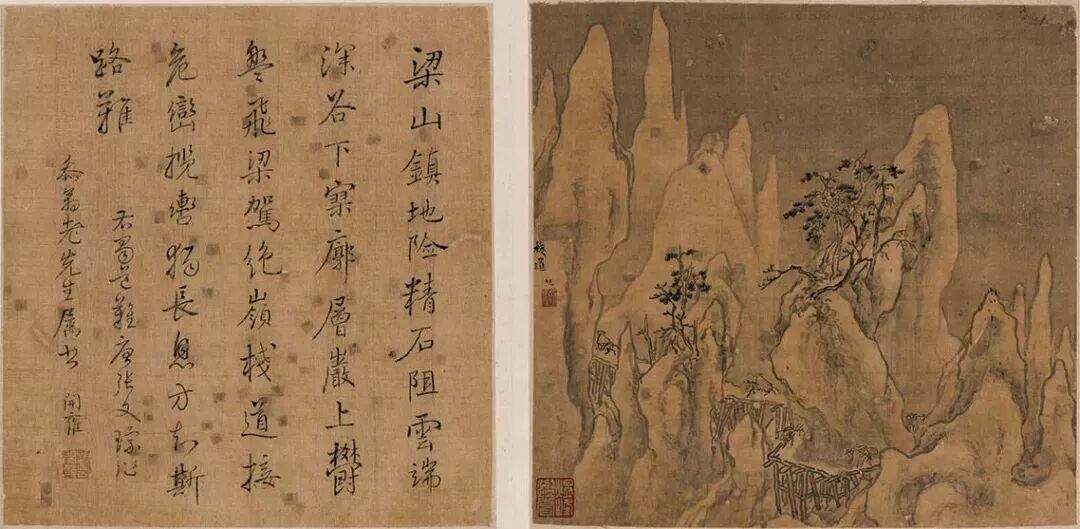 梁山鎮地險精石阻雲端
深谷下寥廓層巖上鬱
盤飛梁駕絕嶺棧道接
危巒攬轡獨長息方知斯
路難
右蜀道難唐張文琮作
泰翁老先生屬書 開雍
棧道